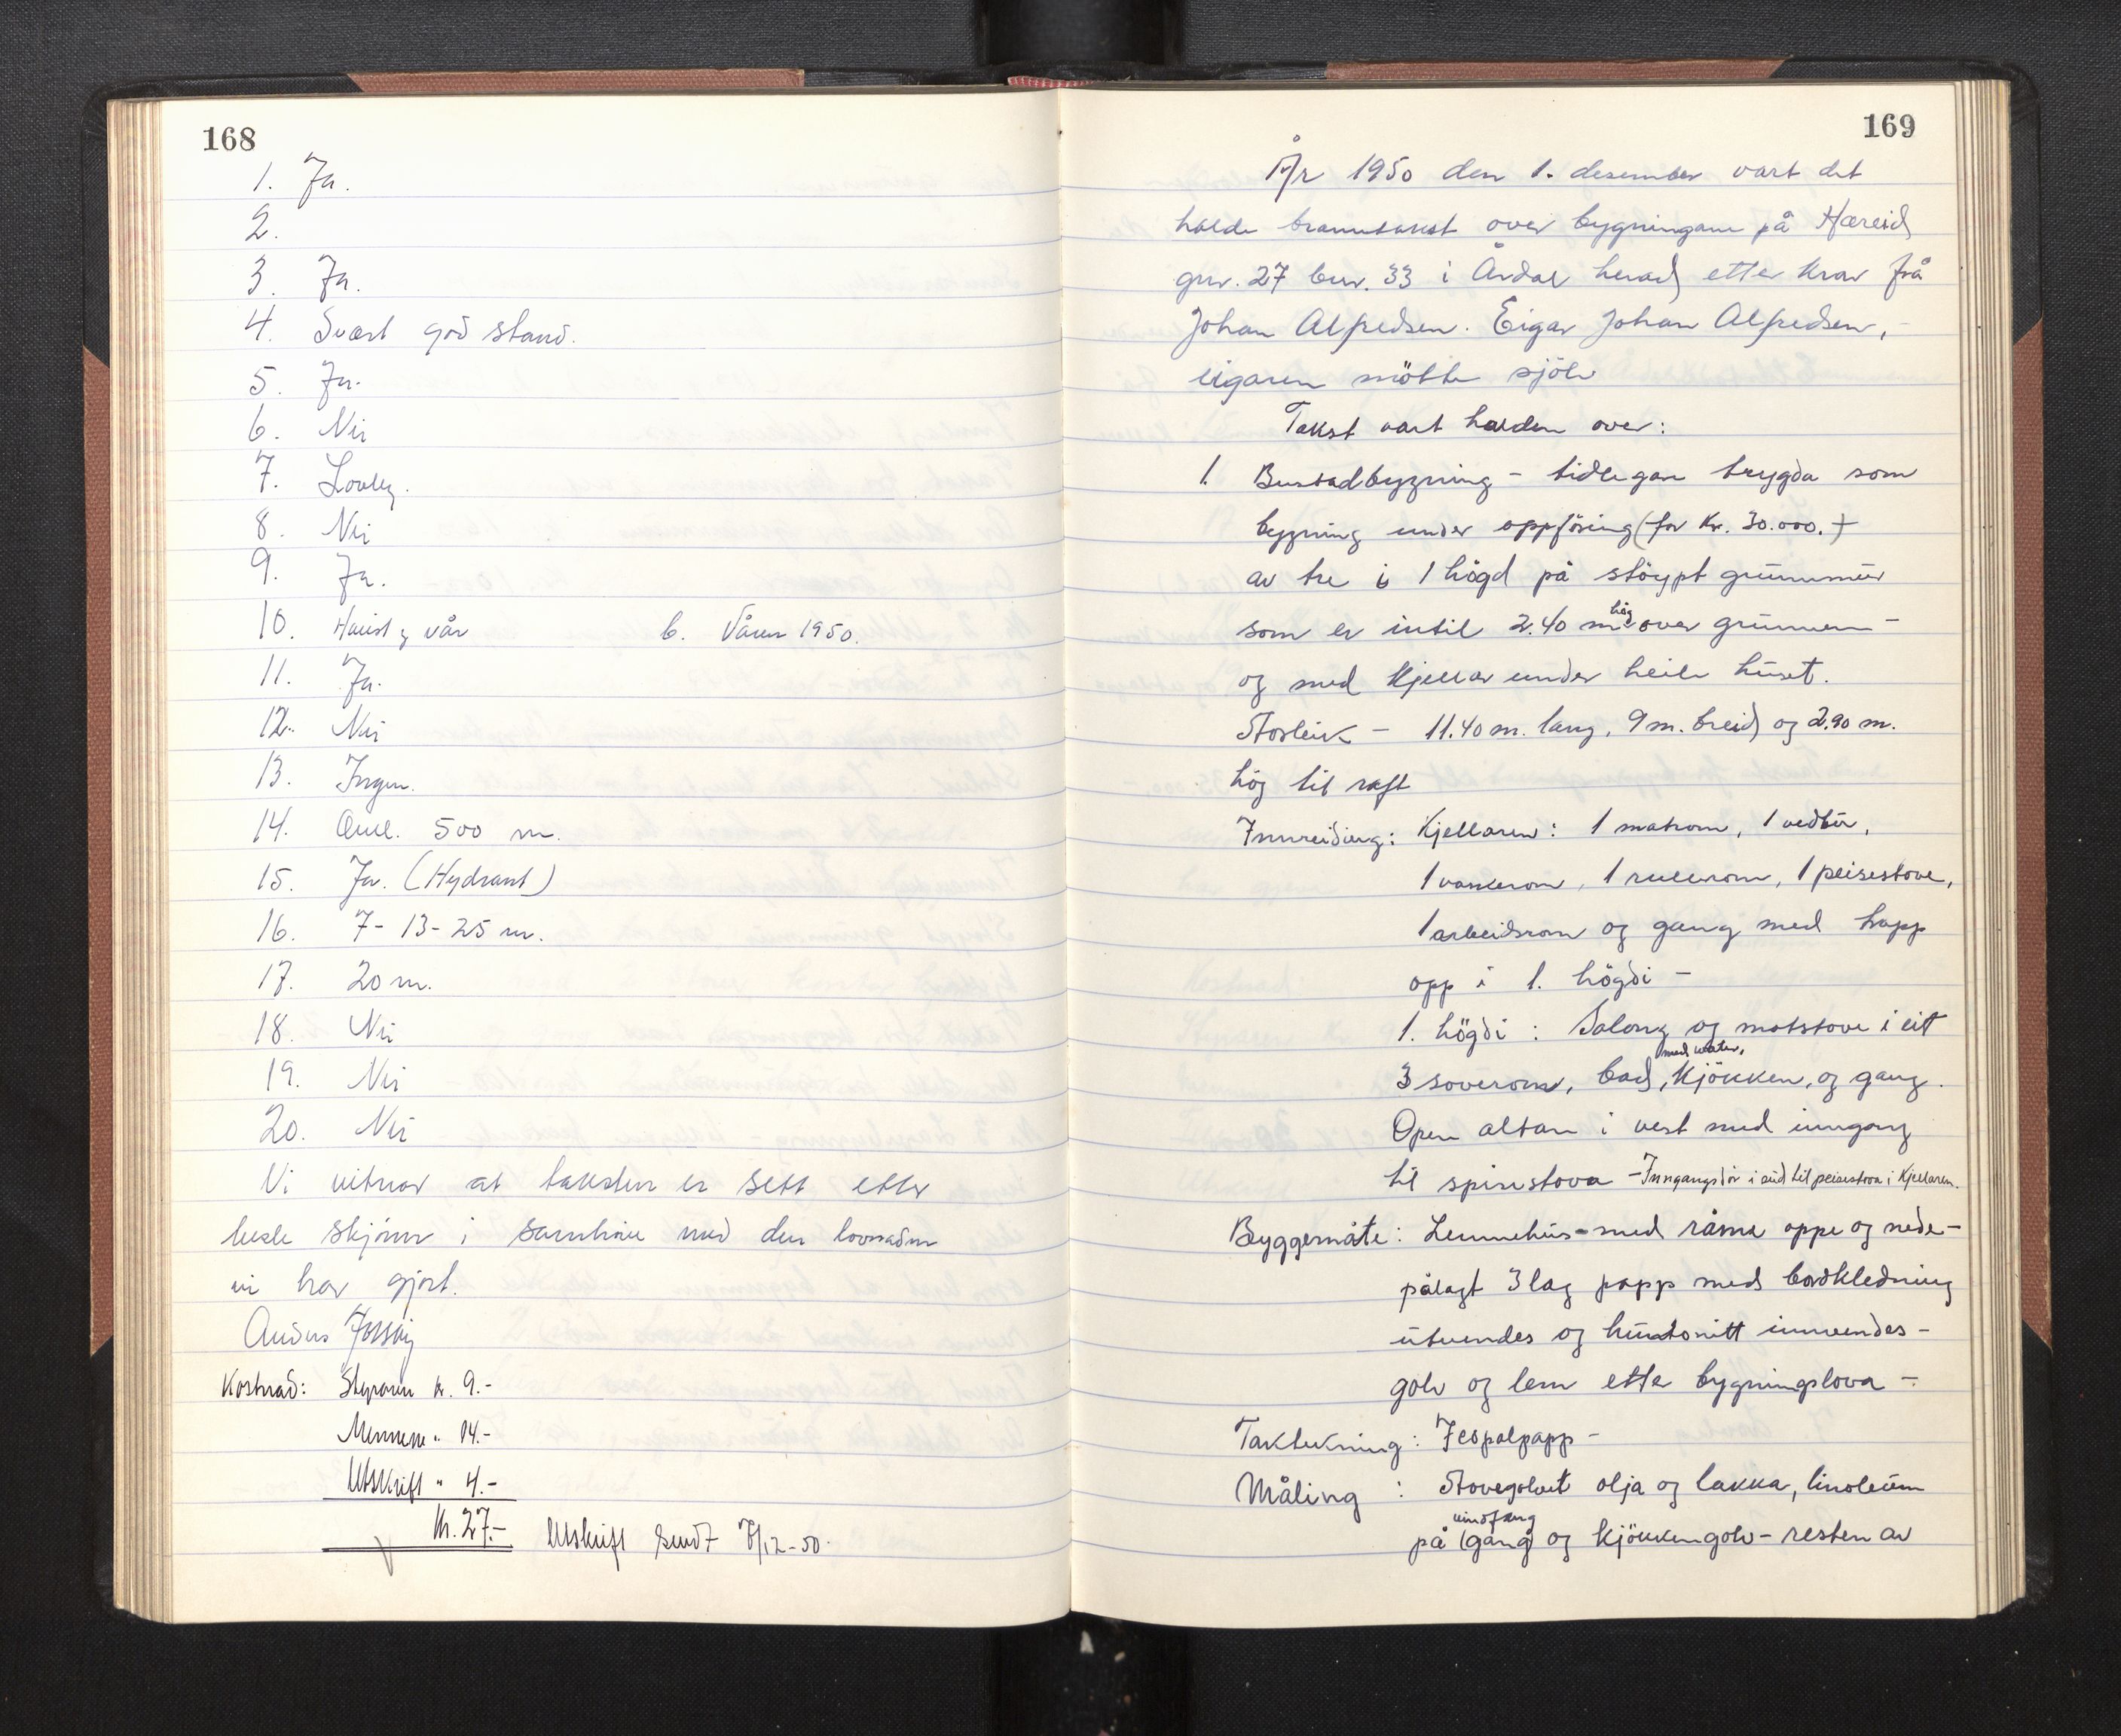 168
1. Ja.
2.
3. Ja.
4. Svært god stand.
5. Ja.
6. Nei
7. Lovleg.
8. Nei
9. Ja.
10. Haust og vår b. Våren 1950.
11. Ja.
12. Nei
13. Ingen.
14. Oml. 500 m.
15. Ja. (Hydrant)
16. 7-13-25 m.
17. 20 m.
18. Nei
19. Nei
20. Nei
Vi vitnar at taksten er sett etter
beste skjønn i samhøve med den lovnaden
vi har gjort.
Anders
Kostnad: Styraren kr. 9.-
Mennene " 14.-
Utskrift " 4.-
Kr. 27.- Utskrift sendt /12-50.
169
År 1950 den 1. desember vart det
halde branntakst over bygningane på Hæreid
gnr. 27 bnr. 33 i Årdal herad etter krav frå
Johan Alfredsen. Eigar Johan Alfredsen, -
eigaren mötte sjölv
Takst vart halden over:
1. Bustadbygning - tidlegare trygda som
bygning under oppföring (for kr. 30.000.-)
av tre i 1 högd på stöypt grunnmur
som er intil 2.40 m hög over grunnen -
og med kjellar under heile huset.
Storleik - 11.40 m. lang, 9 m. breid og 2.90 m.
hög til raft
Innreiding: Kjellaren: 1 matrom, 1 vedbu,
1 vaskerom, 1 rullerom, 1 peisestove,
1 arbeidsrom og gang med trapp
opp i 1. högdi -
1. högdi : Salong og matstove i eit
3 soverom, bad, med water, kjökken, og gang.
Open altan i vest med inngang
til spisestova - Inngangsdör i sud til peisestova i kjellaren.
Byggemåte: Lemmehus - med råme oppe og nede -
pålagt 3 lag papp med bordkledning
utvendes og huntonitt innvendes -
golv og lem etter bygningslova -
Taktekning: Jespalpapp -
Måling : Stovegolvet olja og lakka, linoleum
vindfang
på (gang) og kjökkengolv - resten av